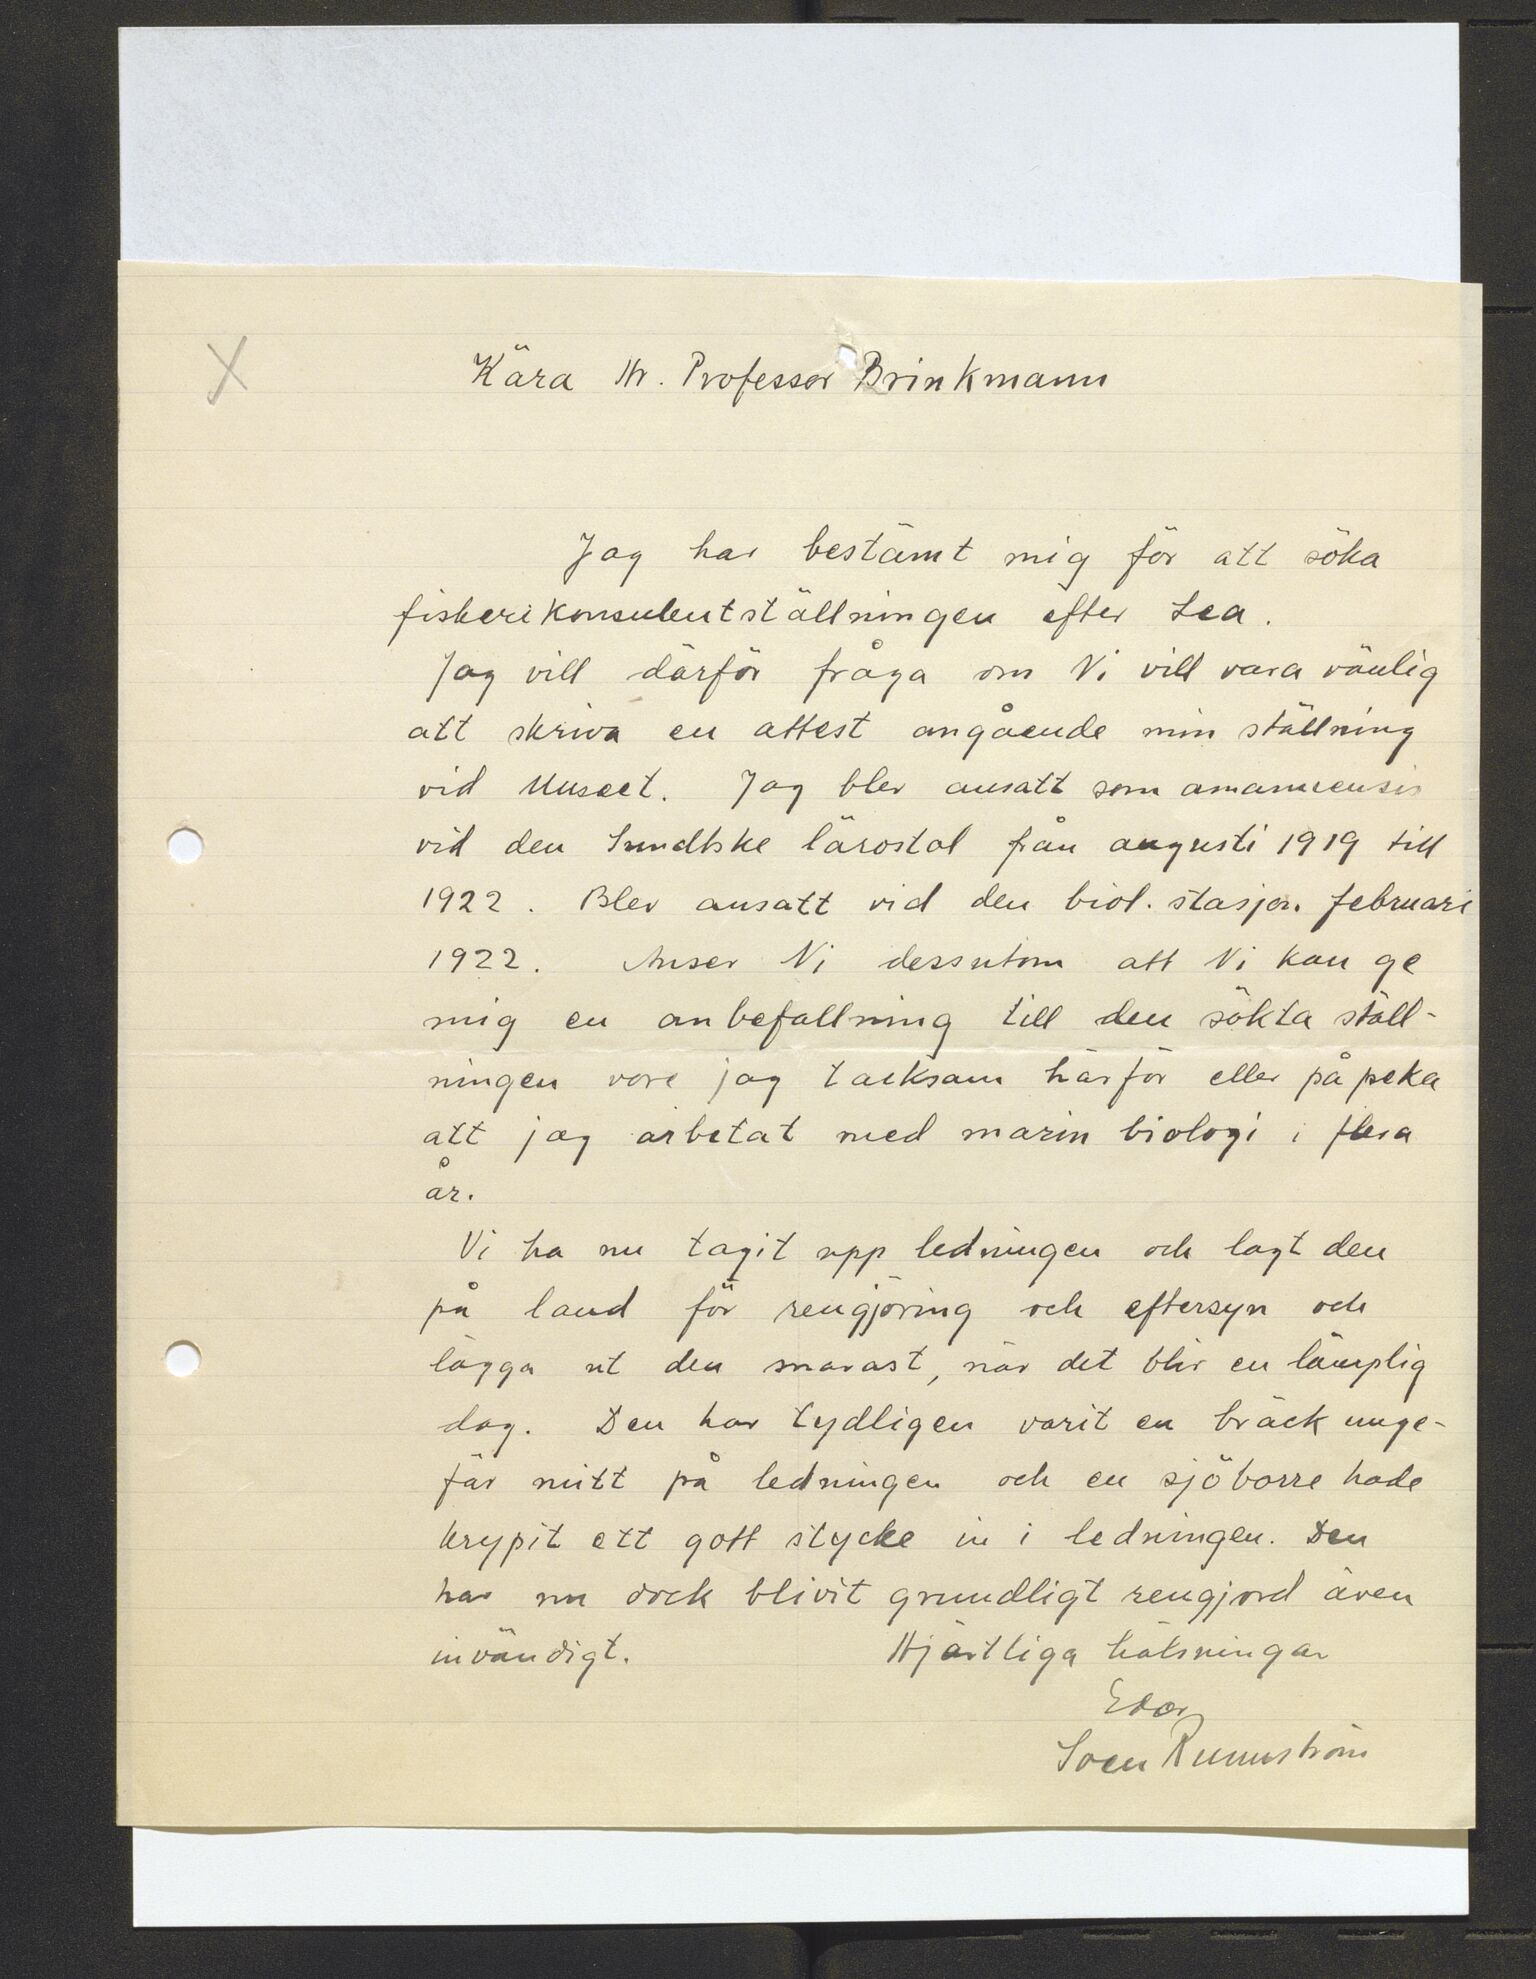 X
Kära Hr. Professor Brinkmann
Jag har bestämt mig för att söka
fiskerikonsulentställningen efter Lea.
Jag vill därför fråga om Ni vill vara vänlig
att skriva en attest angående min ställning
vid Museet. Jag blev ansatt som amanuensis
vid den Sundtske lärostol från augusti 1919 till
1922. Blev ansatt vid den biol. stasjon februari
1922. Anser Ni dessutom att Ni kan ge
mig en anbefallning till den sökta ställ-
ningen vore jag tacksam härför eller påpeka
att jag arbetat med marin biologi i flera
år.
Vi ha nu tagit upp ledningen och lagt den
på land för rengjöring och eftersyn och
lägga ut den snarast, när det blir en lämplig
dag. Den har tydligen varit en bräck unge-
fär mitt på ledningen och en sjöborre hade
krypit ett gott stycke in i ledningen. Den
har nu dock blivit grundligt rengjord även
invändigt. Hjärtliga hälsningar
Eder
Sven Runnström